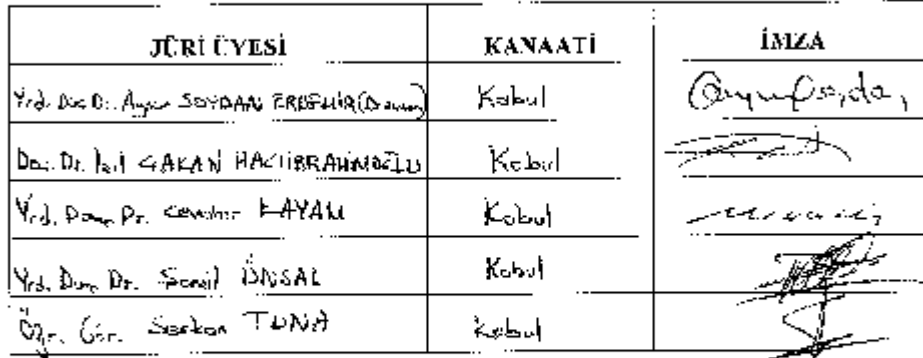 JÜRİ ÜYESİ KANAATİ İMZA
Yrd. Doç. Dr. Aysun SOYDAN ERDEMİR (Danışman) Kabul
Doç. Dr. Işıl ÇAKAN HACIİBRAHİMOĞLU Kabul
Yrd. Doç. Dr. Cevahir KAYAM Kabul
Yrd. Doç. Dr. ÜNSAL Kabul
Öğr. Gör. Serkan TUNA Kabul